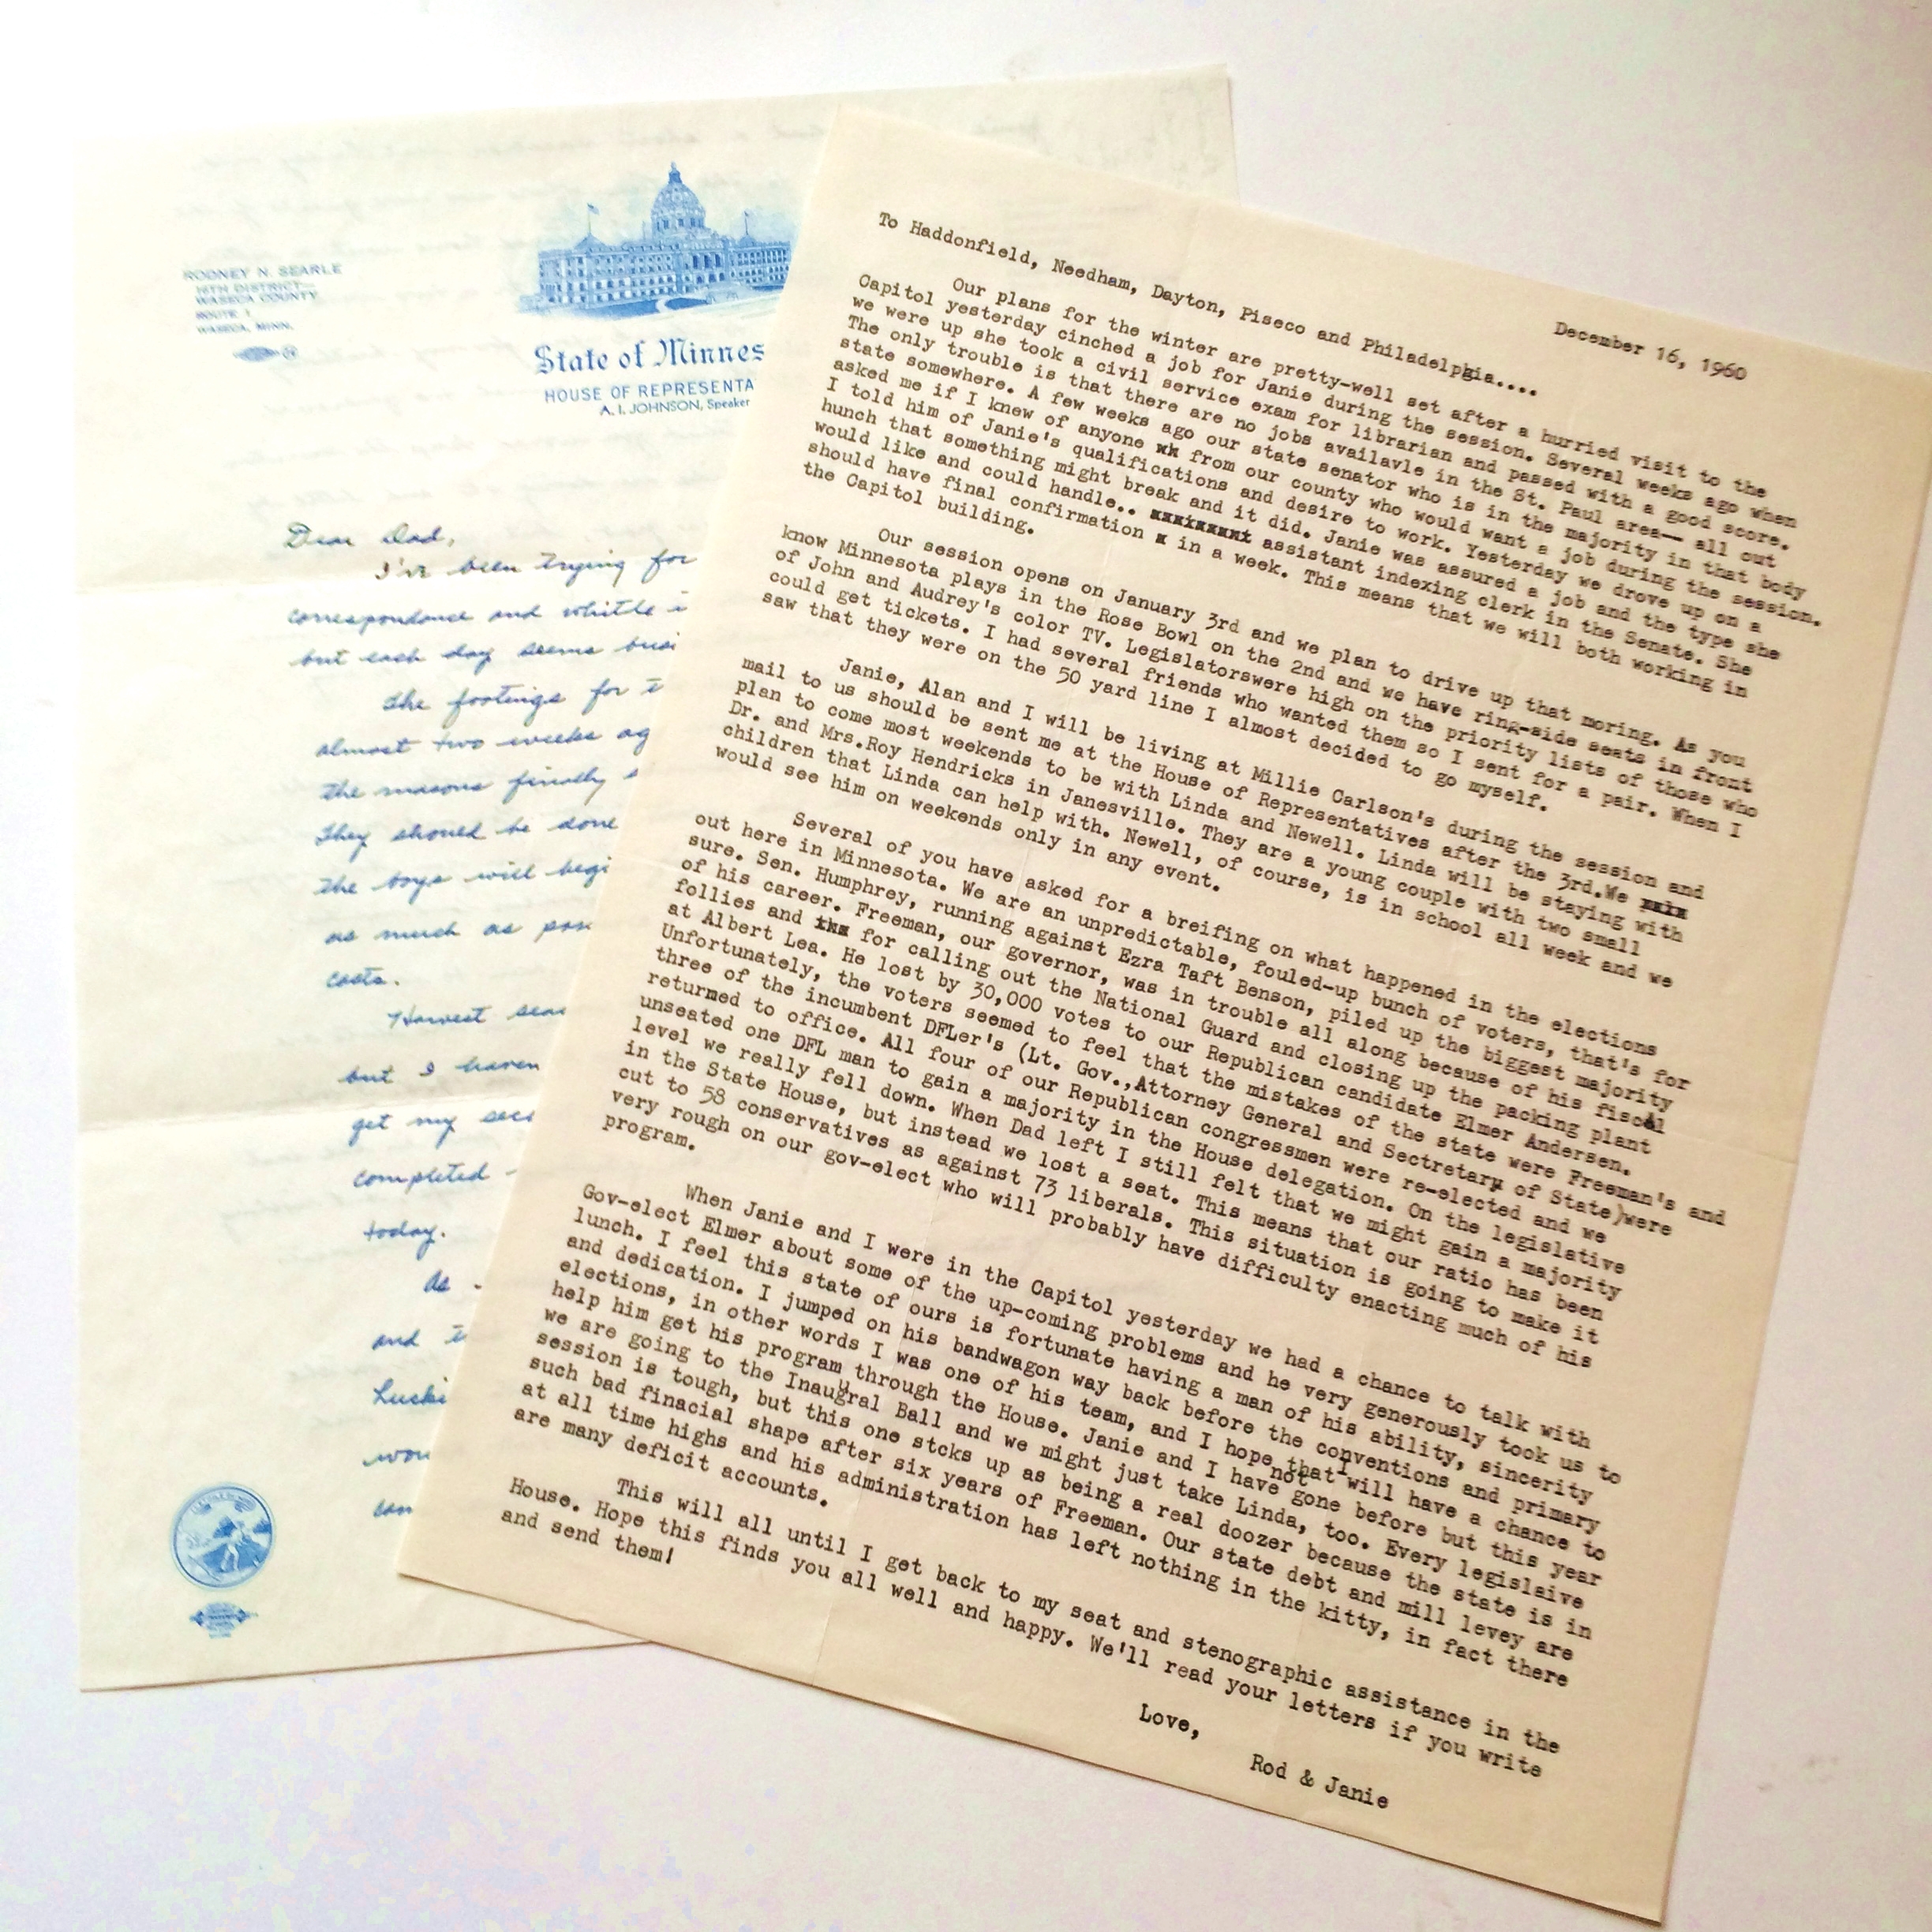 RODNEY N. SEARLE
16TH DISTRICT—
WASECA COUNTY
ROUTE 1
WASECA, MINN.
State of Minnes
HOUSE OF REPRESENTA
A. I. JOHNSON, Speaker
Dear Dad,
I've been trying for
correspondence and whittle i
but each day seems busi
The footings for t
almost two weeks ag
the masons finally s
They should be done
the boys will begi
as much as pos
costs.
Harvest seas
but I haven
get my sec
completed -
today.
As
and t
Lucki
wou
can
To Haddonfield, Needham, Dayton, Piseco and Philadelphgia....
December 16, 1960
Our plans for the winter are pretty-well set after a hurried visit to the
Capitol yesterday cinched a job for Janie during the session. Several weeks ago when
we were up she took a civil service exam for librarian and passed with a good score.
The only trouble is that there are no jobs availavle in the St. Paul area-- all out
state somewhere. A few weeks ago our state senator who is in the majority in that body
asked me if I knew of anyone wh from our county who would want a job during the session.
I told him of Janie's qualifications and desire to work. Yesterday we drove up on a
hunch that something might break and it did. Janie was assured a job and the type she
would like and could handle.. assistant indexing clerk in the Senate. She
should have final confirmation in a week. This means that we will both working in
the Capitol building.
Our session opens on January 3rd and we plan to drive up that moring. As you
know Minnesota plays in the Rose Bowl on the 2nd and we have ring-side seats in front
of John and Audrey's color TV. Legislatorswere high on the priority lists of those who
could get tickets. I had several friends who wanted them so I sent for a pair. When I
saw that they were on the 50 yard line I almost decided to go myself.
Janie, Alan and I will be living at Millie Carlson's during the session and
mail to us should be sent me at the House of Representatives after the 3rd.We
plan to come most weekends to be with Linda and Newell. Linda will be staying with
Dr. and Mrs.Roy Hendricks in Janesville. They are a young couple with two small
children that Linda can help with. Newell, of course, is in school all week and we
would see him on weekends only in any event.
Several of you have asked for a breifing on what happened in the elections
out here in Minnesota. We are an unpredictable, fouled-up bunch of voters, that's for
sure. Sen. Humphrey, running against Ezra Taft Benson, piled up the biggest majority
of his career. Freeman, our governor, was in trouble all along because of his fiscal
follies and for calling out the National Guard and closing up the packing plant
at Albert Lea. He lost by 30,000 votes to our Republican candidate Elmer Andersen.
Unfortunately, the voters seemed to feel that the mistakes of the state were Freeman's and
three of the incumbent DFLer's (Lt. Gov.,Attorney General and Sectretary of State)were
returned to office. All four of our Republican congressmen were re-elected and we
unseated one DFL man to gain a majority in the House delegation. On the legislative
level we really fell down. When Dad left I still felt that we might gain a majority
in the State House, but instead we lost a seat. This means that our ratio has been
cut to 58 conservatives as against 73 liberals. This situation is going to make it
very rough on our gov-elect who will probably have difficulty enacting much of his
program.
When Janie and I were in the Capitol yesterday we had a chance to talk with
Gov-elect Elmer about some of the up-coming problems and he very generously took us to
lunch. I feel this state of ours is fortunate having a man of his ability, sincerity
and dedication. I jumped on his bandwagon way back before the conventions and primary
elections, in other words I was one of his team, and I hope that I will have a chance to
help him get his program through the House. Janie and I have not gone before but this year
we are going to the Inaugural Ball and we might just take Linda, too. Every legislaive
session is tough, but this one stcks up as being a real doozer because the state is in
such bad finacial shape after six years of Freeman. Our state debt and mill levey are
at all time highs and his administration has left nothing in the kitty, in fact there
are many deficit accounts.
This will all until I get back to my seat and stenographic assistance in the
House. Hope this finds you all well and happy. We'll read your letters if you write
and send them!
Love,
Rod & Janie